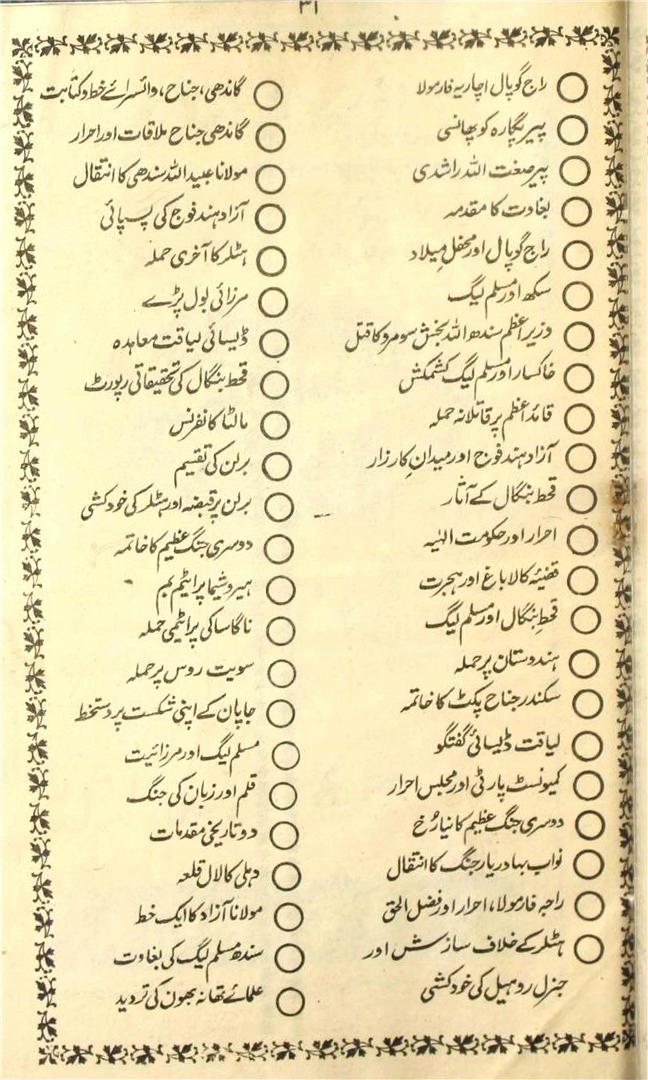 ۳۱
راج گوپال اچاریہ فارمولا
پیر پگارہ کو پھانسی
پیر صبغت اللہ راشدی
بغاوت کا مقدمہ
راج گوپال اور محفل میلاد
سکھ اور مسلم لیگ
وزیر اعظم سندھ اللہ بخش سومرو کا قتل
خاکسار اور مسلم لیگ کشمکش
قائد اعظم پر قاتلانہ حملہ
آزاد ہند فوج اور میدانِ کارزار
قحط بنگال کے آثار
احرار اور حکومت الٰہیہ
قضیۂ کالا باغ اور ہجرت
قحطِ بنگال اور مسلم لیگ
ہندوستان پر حملہ
سکندر جناح پکٹ کا خاتمہ
لیاقت ڈیسائی گفتگو
کمیونسٹ پارٹی اور مجلس احرار
دوسری جنگ عظیم کا نیا رُخ
نواب بہادر یار جنگ کا انتقال
راجہ فارمولا، احرار اور فضل الحق
ہٹلر کے خلاف سازش اور
جنرل رومیل کی خودکشی
گاندھی، جناح، وائسرائے خط و کتابت
گاندھی جناح ملاقات اور احرار
مولانا عبید اللہ سندھی کا انتقال
آزاد ہند فوج کی پسپائی
ہٹلر کا آخری حملہ
مرزائی بول پڑے
ڈیسائی لیاقت معاہدہ
قحط بنگال کی تحقیقاتی رپورٹ
مالٹا کانفرنس
برلن کی تقسیم
برلن پر قبضہ اور ہٹلر کی خودکشی
دوسری جنگ عظیم کا خاتمہ
ہیروشیما پر ایٹم بم
ناگاساکی پر ایٹمی حملہ
سویت روس پر حملہ
جاپان کے اپنی شکست پر دستخط
مسلم لیگ اور مرزائیت
قلم اور زبان کی جنگ
دو تاریخی مقدمات
دہلی کا لال قلعہ
مولانا آزاد کا ایک خط
سندھ مسلم لیگ کی بغاوت
علمائے تھانہ بھون کی تردید